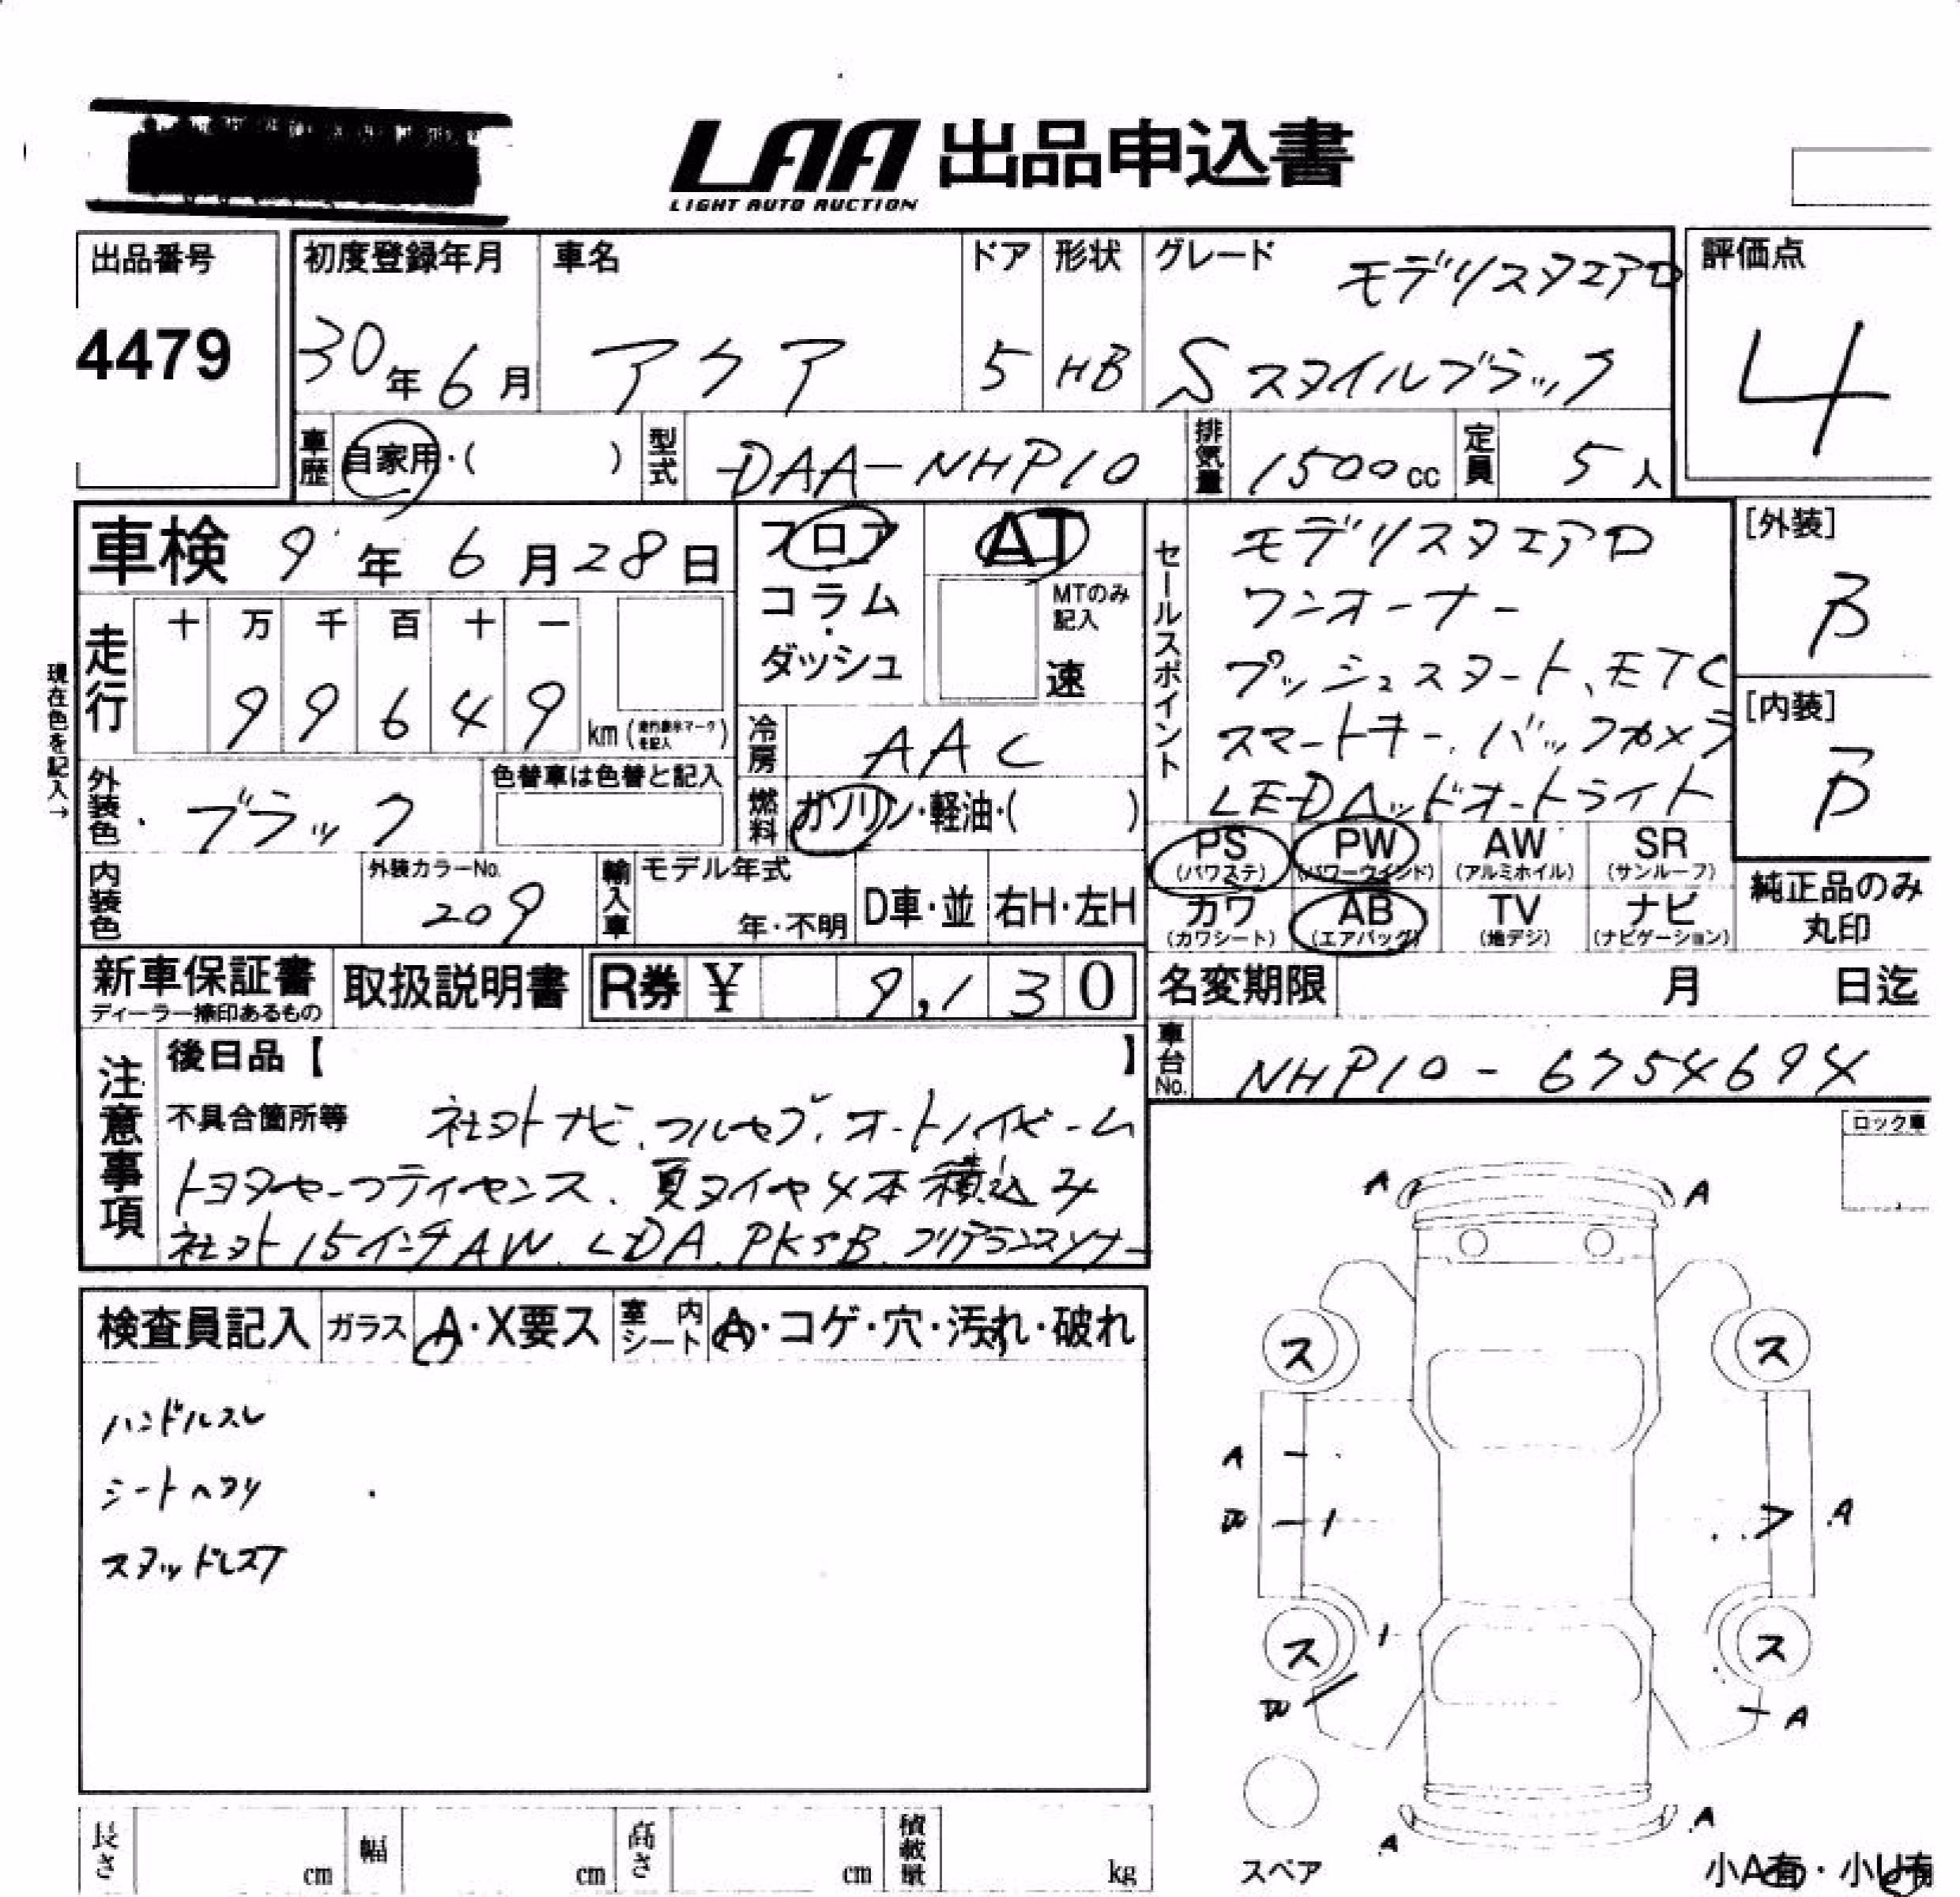 LAA 出品申込書
LIGHT AUTO AUCTION
出品番号
4479
初度登録年月
30年6月
車名
アクア
ドア
5
形状
HB
グレード
モデリスタエアロ
Sスタイルブラック
評価点
4
車歴
自家用・( )
型式
DAA-NHP10
排気量
1500cc
定員
5人
車検 9年6月28日
フロア
コラム
・
ダッシュ
AT
MTのみ
記入
速
セールスポイント
モデリスタエアロ
ワンオーナー
プッシュスタート、ETC
スマートキー、バックカメラ
LEDヘッドオートライト
[外装]
B
[内装]
B
現在色を記入→
走行
十 万 千 百 十 一
9 9 6 4 9
km
(走行表示マークを記入)
冷房
AAC
燃料
ガソリン・軽油・( )
外装色
ブラック
色替車は色替と記入
内装色
外装カラーNo.
209
輸入車
モデル年式
年・不明
D車・並
右H・左H
PS
(パワステ)
PW
(パワーウインド)
AW
(アルミホイル)
SR
(サンルーフ)
カワ
(カワシート)
AB
(エアバッグ)
TV
(地デジ)
ナビ
(ナビゲーション)
純正品のみ
丸印
新車保証書
ディーラー捺印あるもの
取扱説明書
R券 ¥ 9,130
名変期限
月 日迄
車台No.
NHP10-6754694
注意事項
後日品【 】
不具合箇所等
社外ナビ、フルセグ、オートハイビーム
トヨタセーフティセンス、夏タイヤ4本積込み
社外15インチAW、LDA、PKSB、クリアランスソナー
ロック車
検査員記入
ガラス
A・X要ス
室内シート
A・コゲ・穴・汚れ・破れ
ハンドルスレ
シートヘタリ
スタッドレスT
A
A
ス
ス
A
A
ス
ス
A
A
A
スペア
小A有・小U有
長さ
cm
幅
cm
高さ
cm
積載量
kg